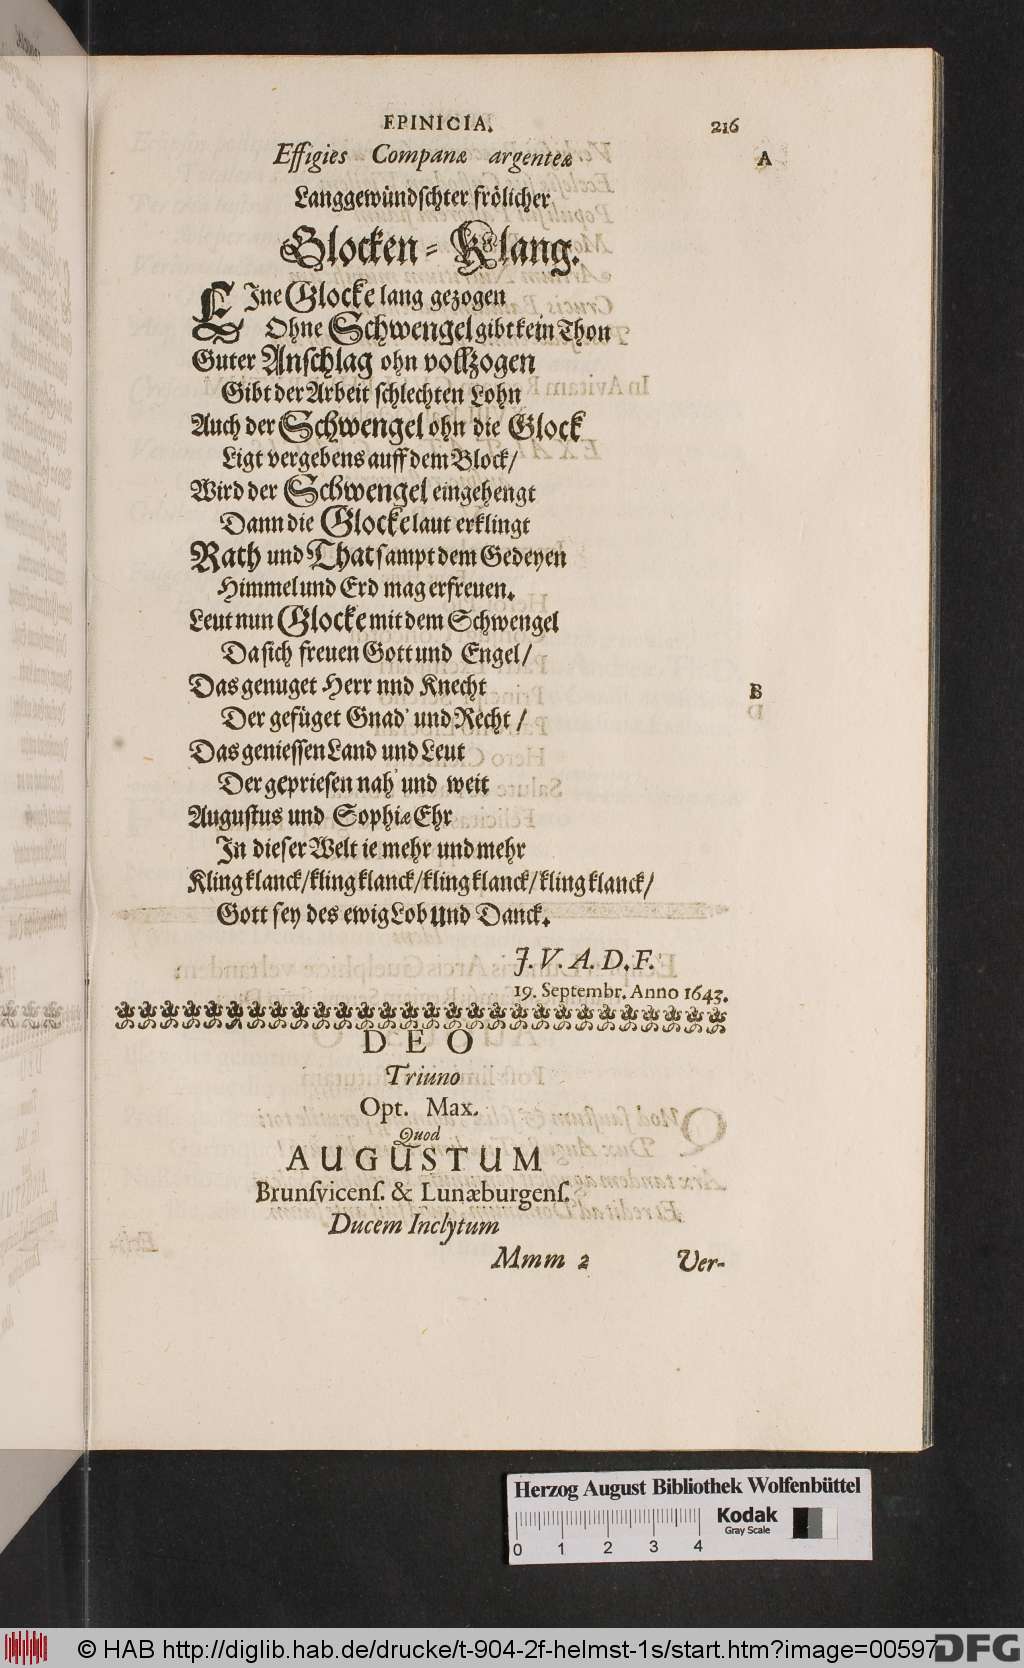 EPINICIA. 216
Effigies Companæ argenteæ A
Langgewündschter frölicher
Glocken-Klang.
EIne Glocke lang gezogen
Ohne Schwengel gibt kein Thon
Guter Anschlag ohn vollzogen
Gibt der Arbeit schlechten Lohn
Auch der Schwengel ohn die Glock
Ligt vergebens auff dem Block/
Wird der Schwengel eingehengt
Dann die Glocke laut erklingt
Rath und That sampt dem Gedeyen
Himmel und Erd mag erfreuen.
Leut nun Glocke mit dem Schwengel
Da sich freuen Gott und Engel/
Das genuget Herr nnd Knecht B
Der gefüget Gnad' und Recht/
Das geniessen Land und Leut
Der gepriesen nah' und weit
Augustus und Sophiæ Ehr
In dieser Welt ie mehr und mehr
Kling klanck/kling klanck/kling klanck/kling klanck/
Gott sey des ewig Lob und Danck.
J. V. A. D. F.
19. Septembr. Anno 1643.
DEO
Triuno
Opt. Max.
Quod
AUGUSTUM
Brunſvicenſ. & Lunæburgenſ.
Ducem Inclytum
Mmm 2 Ver-
Herzog August Bibliothek Wolfenbüttel
Kodak
Gray Scale
0 1 2 3 4
© HAB http://diglib.hab.de/drucke/t-904-2f-helmst-1s/start.htm?image=00597
DFG